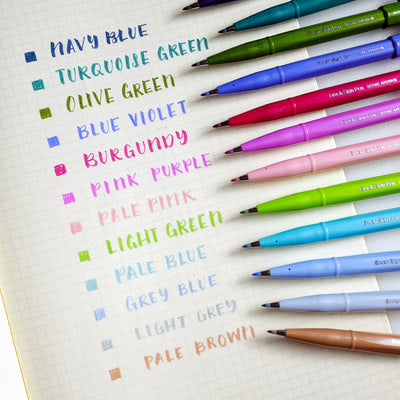 NAVY BLUE
TURQUOISE GREEN
OLIVE GREEN
BLUE VIOLET
BURGUNDY
PINK PURPLE
PALE PINK
LIGHT GREEN
PALE BLUE
GREY BLUE
LIGHT GREY
PALE BROWN